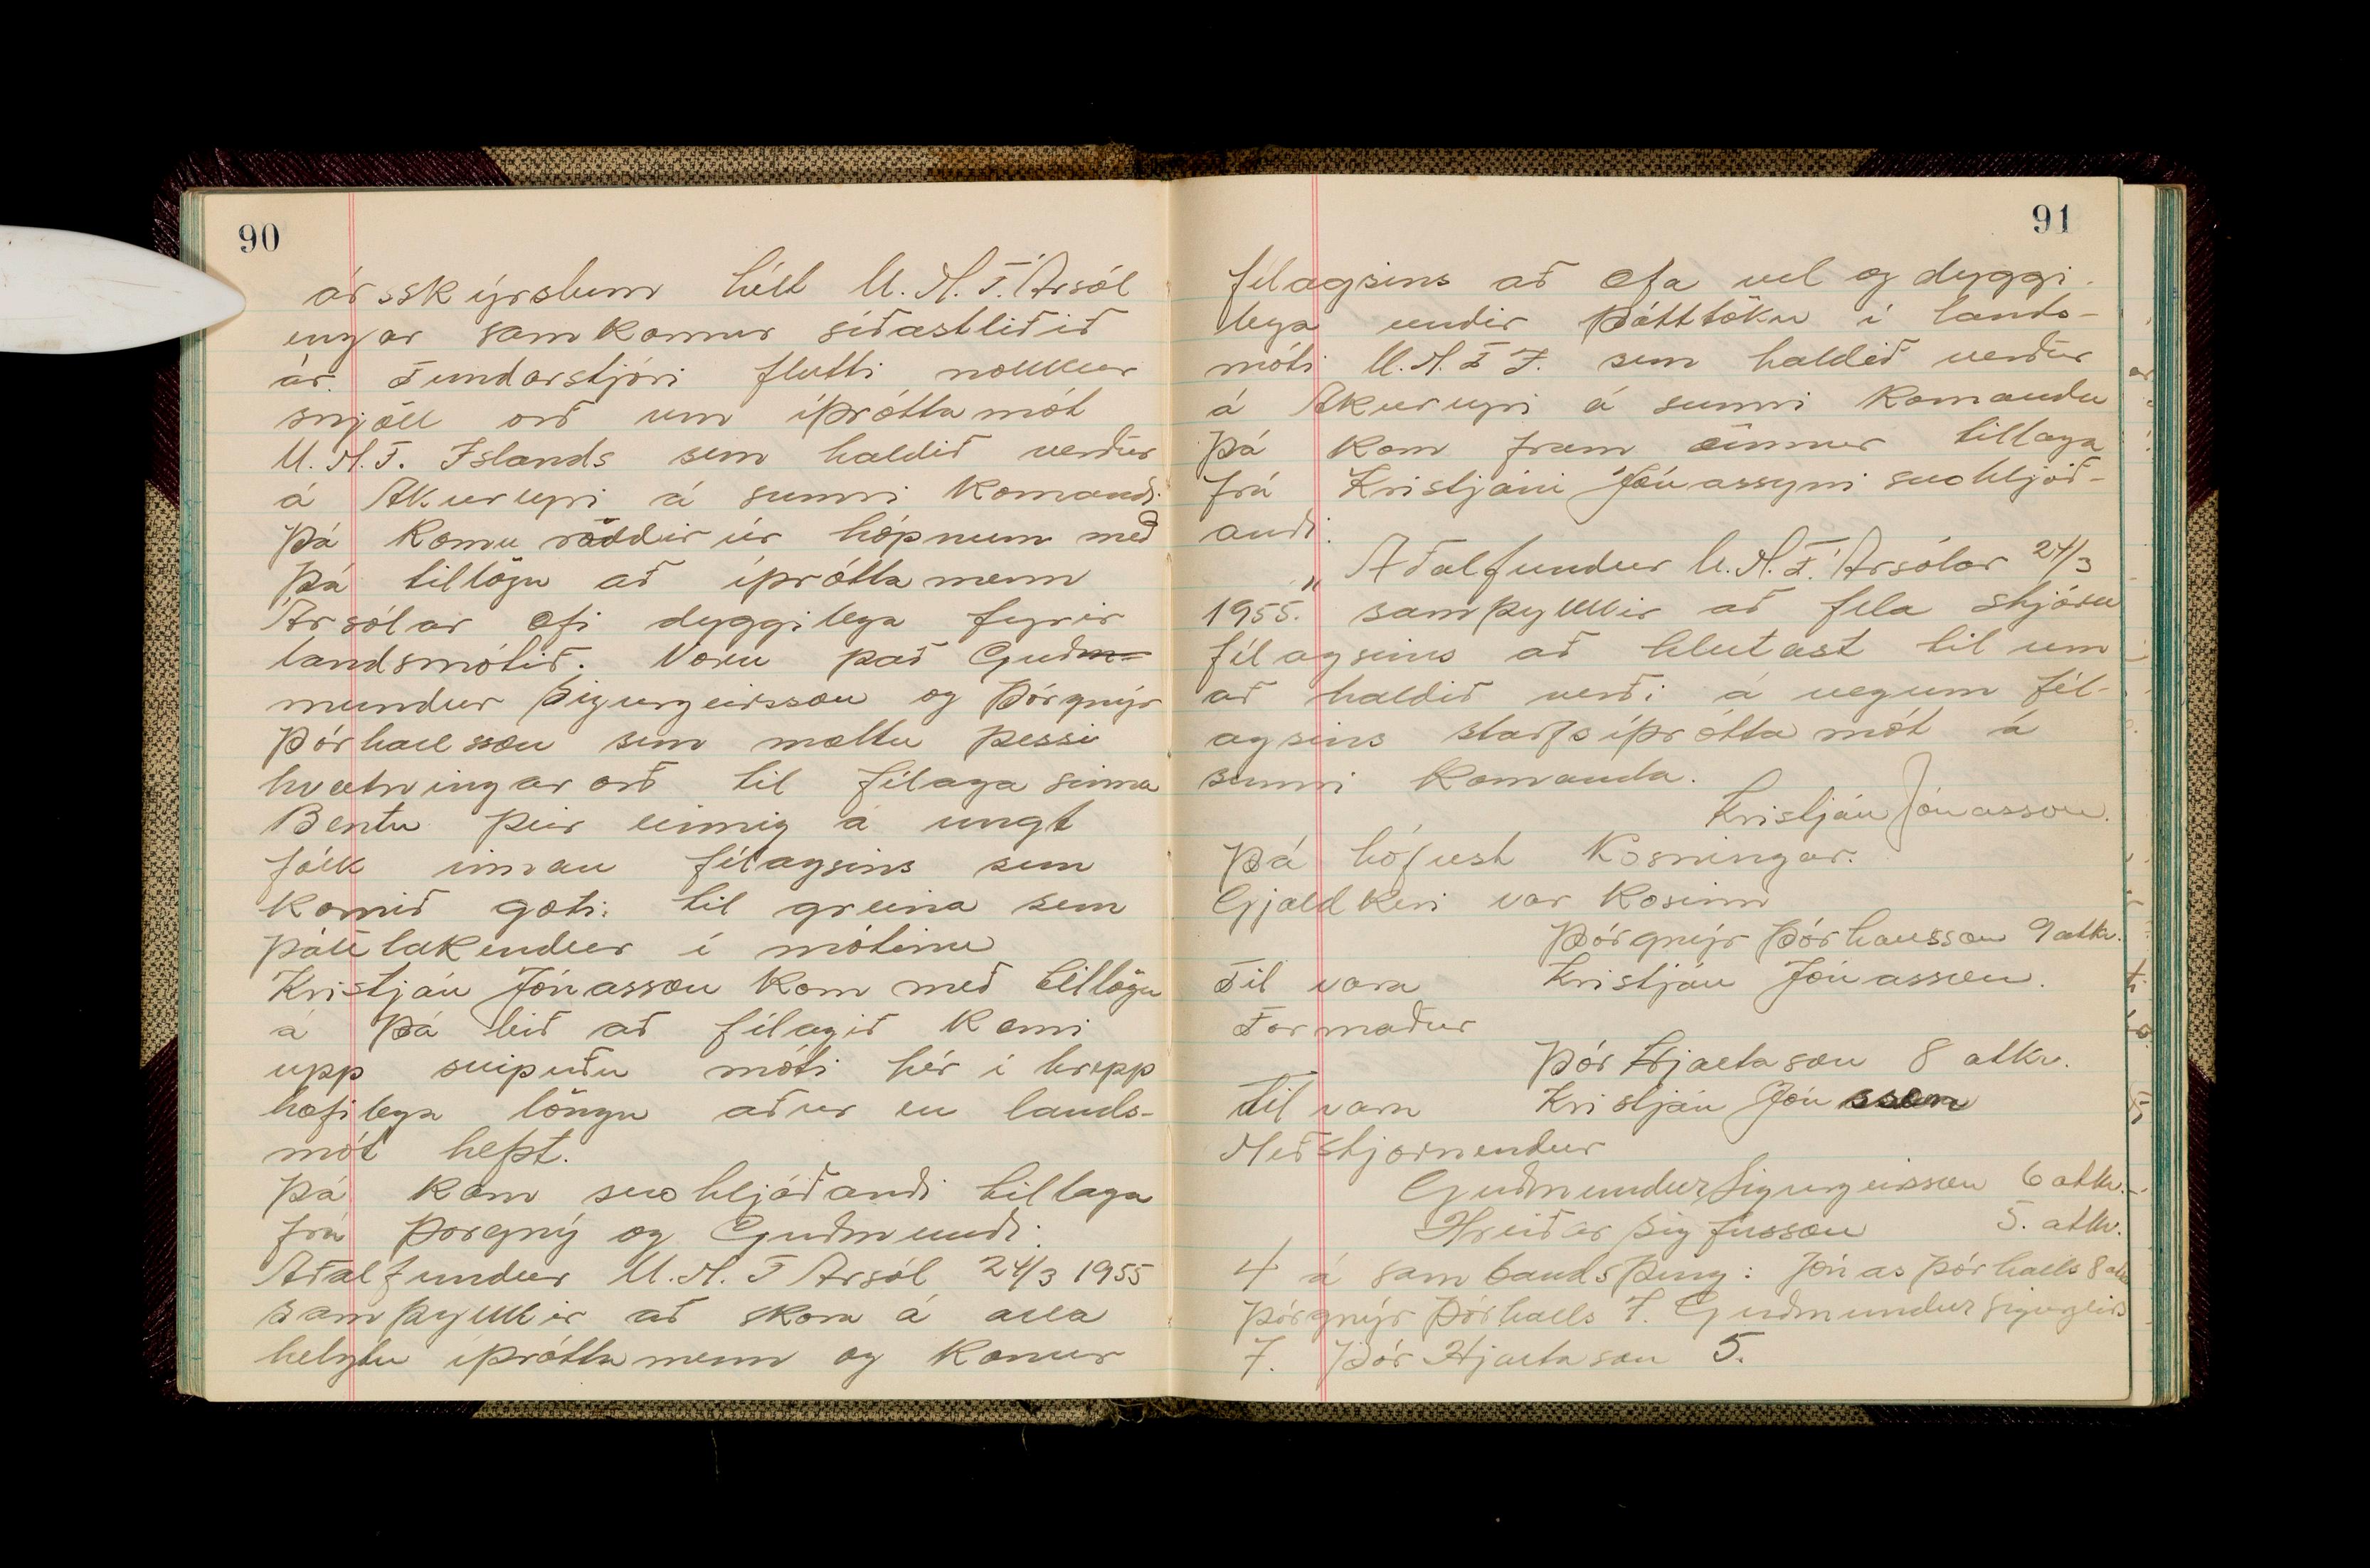 90
ársskýrslum hélt U.M.F. Ársól
engar samkomur síðastliðið
ár. Fundarstjóri flutti nokkur
snjöll orð um íþróttamót
U.M.F. Islands sem haldið verður
á Akureyri á sumri komandi.
Þá komu raddir úr hópnum með
þá tillögu að íþróttamenn
Ársólar æfi dyggilega fyrir
landsmótið. Voru það Guðm-
mundur Sigurgeirsson og Þórgnýr
Þórhallsson sem mæltu þessi
hvatningarorð til félaga sinna
Bentu þeir einnig á ungt
fólk innan félagsins sem
komið gæti til greina sem
þátttakendur í mótinu
Kristján Jónasson kom með tillögu
á þá leið að félagið komi
upp svipuðu móti hér í hrepp
hæfilega löngu aður en lands-
mót hefst.
Þá kom svohljóðandi tillaga
frá Þorgný og Guðmundi.
Aðalfundur U.M.F Arsól 24/3 1955
samþykkir að skora á alla
helstu íþróttamenn og konur
91
félagsins að æfa vel og dyggi-
lega undir þátttöku í lands-
móti U.M.F.Í. sem haldið verður
á Akureyri á sumri komandu
Þá kom fram önnur tillaga
frá Kristjáni Jónassyni svohljóð-
andi:
„Aðalfundur U.M.F. Ársólar 24/3
1955. samþykkir að fela stjórn
félagsins að hlutast til um
að haldið verði á vegum fél-
agsins starfsíþróttamót á
sumri komanda.
Kristján Jónasson.
Þá hófust kosningar.
Gjaldkeri var kosinn
Þórgnýr Þórhallsson 9 atkv.
Til vara Kristján Jónasson.
Formaður
Þór Hjaltason 8 atkv.
Til vara Kristján Jónsson
Meðstjornendur
Guðmundur Sigurgeirsson 6 atkv.
Hreiðar Sigfússon 5. atkv.
4 á sambandsþing: Jónas Þórhalls 8 atkv
Þórgnýr Þórhalls 7. Guðmundur Sigurgeirs
7. Þór Hjaltason 5.